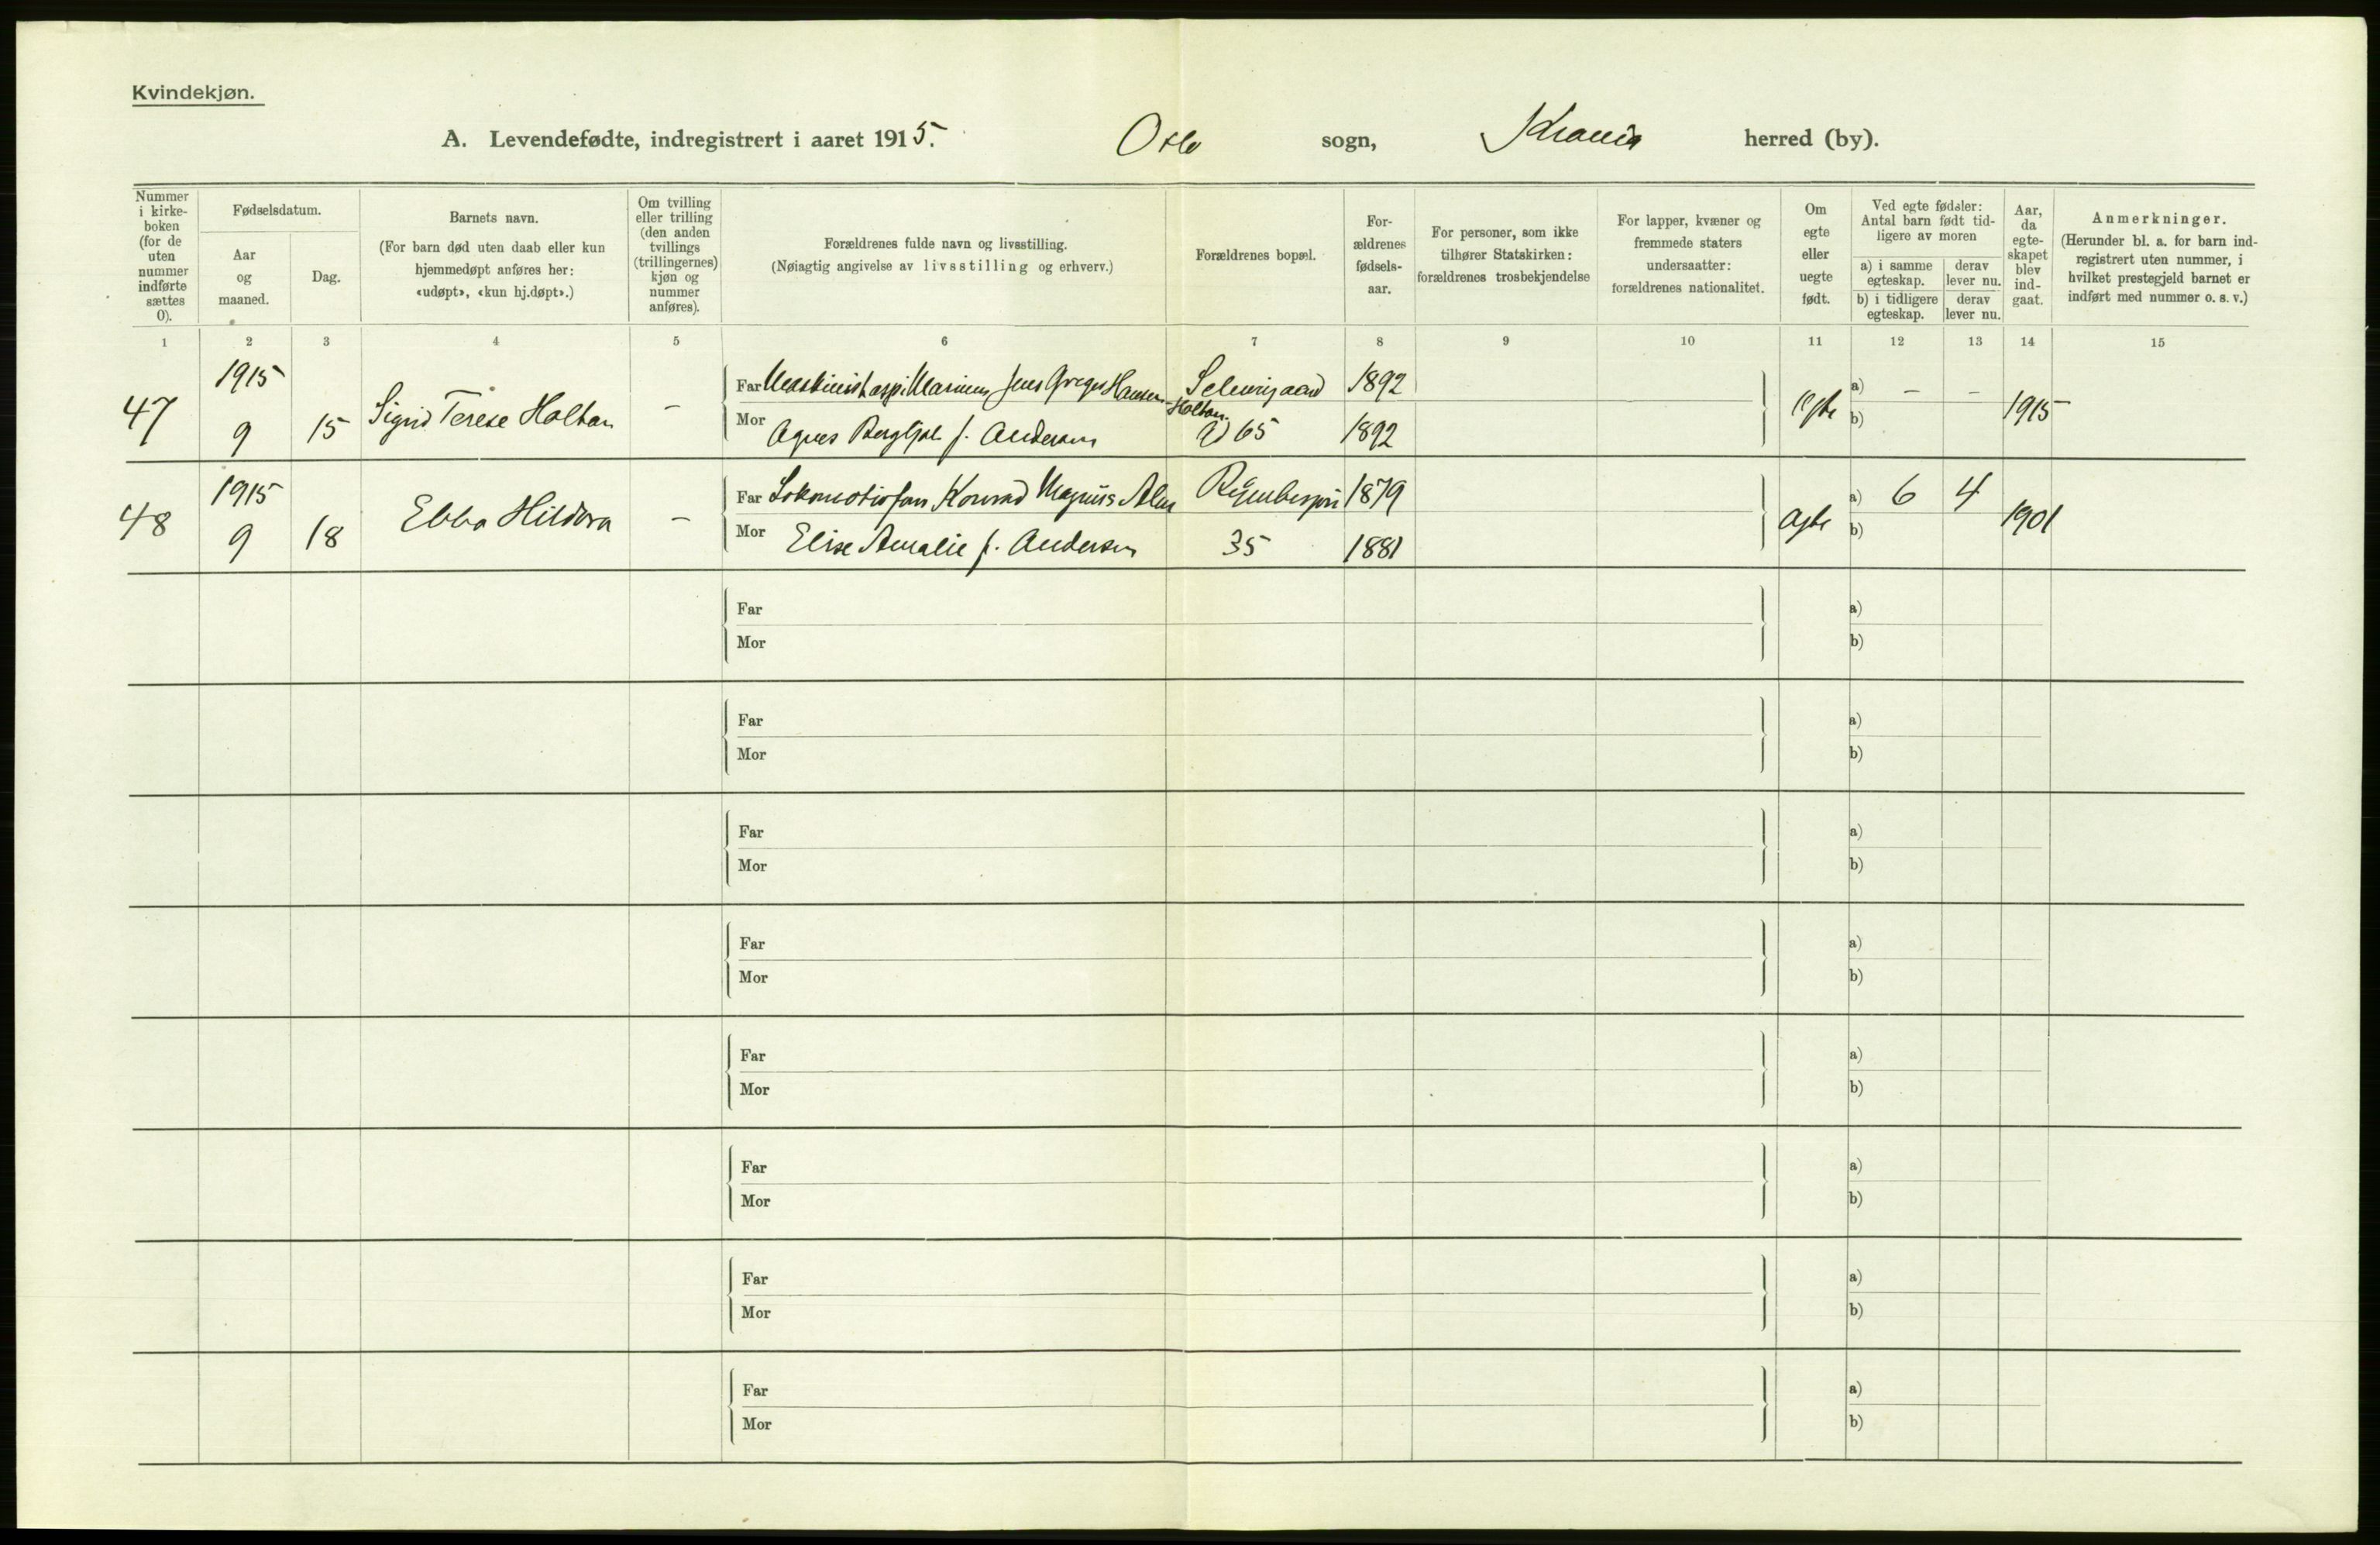 Kvindekjøn.
A. Levendefødte, indregistrert i aaret 1915. Oslo sogn, Krania herred (by).
Nummer i kirke-boken (for de uten nummer indførte sættes 0).
Fødselsdatum.
Aar og maaned.
Dag.
Barnets navn.
(For barn død uten daab eller kun hjemmedøpt anføres her: «udøpt», «kun hj.døpt».)
Om tvilling eller trilling (den anden tvillings (trillingernes) kjøn og nummer anføres).
Forældrenes fulde navn og livsstilling.
(Nøiagtig angivelse av livsstilling og erhverv.)
Forældrenes bopæl.
For-ældrenes fødsels-aar.
For personer, som ikke tilhører Statskirken: forældrenes trosbekjendelse
For lapper, kvæner og fremmede staters undersaatter: forældrenes nationalitet.
Om egte eller uegte født.
Ved egte fødsler: Antal barn født tid-ligere av moren
a) i samme egteskap.
derav lever nu.
b) i tidligere egteskap.
derav lever nu.
Aar, da egte-skapet blev ind-gaat.
Anmerkninger.
(Herunder bl. a. for barn ind-registrert uten nummer, i hvilket prestegjeld barnet er indført med nummer o. s. v.)
1 2 3 4 5 6 7 8 9 10 11 12 13 14 15
47 1915 9 15 Sigrid Terese Holtan -
Far Maskinistaspi. Marinius Jens Greger Hansen Holtan 1892
Mor Agnes Bergljot f. Andersen 65 1892
Egte a) - - b) 1915
48 1915 9 18 Ebba Hildora -
Far Konrad Magnus 1879
Mor Elise Amalie f. Andersen 35 1881
Egte a) 6 4 b) 1901
Far a)
Mor b)
Far a)
Mor b)
Far a)
Mor b)
Far a)
Mor b)
Far a)
Mor b)
Far a)
Mor b)
Far a)
Mor b)
Far a)
Mor b)